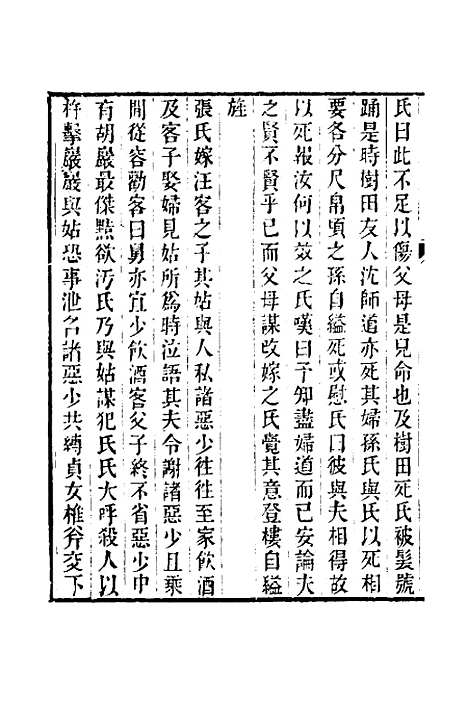 氏曰此不足以傷父母是兒命也及樹田死氏被髮號
踊是時樹田友人沈師道亦死其婦孫氏與氏以死相
要各分尺帛頃之孫自縊死或慰氏曰彼與夫相得故
以死報汝何以效之氏嘆曰予知盡婦道而已安論夫
之賢不賢乎已而父母謀改嫁之氏覺其意登樓自縊
旌
張氏嫁汪客之子其姑與人私諸惡少往往至家飲酒
及客子娶婦見姑所爲時泣語其夫令謝諸惡少且乘
間從容勸客曰舅亦宜少飲酒客父子終不省惡少中
有胡巖最傑黠欲汚氏乃與姑謀犯氏氏大呼殺人以
杵擊巖巖與姑恐事泄名諸惡少共縛貞女椎斧交下